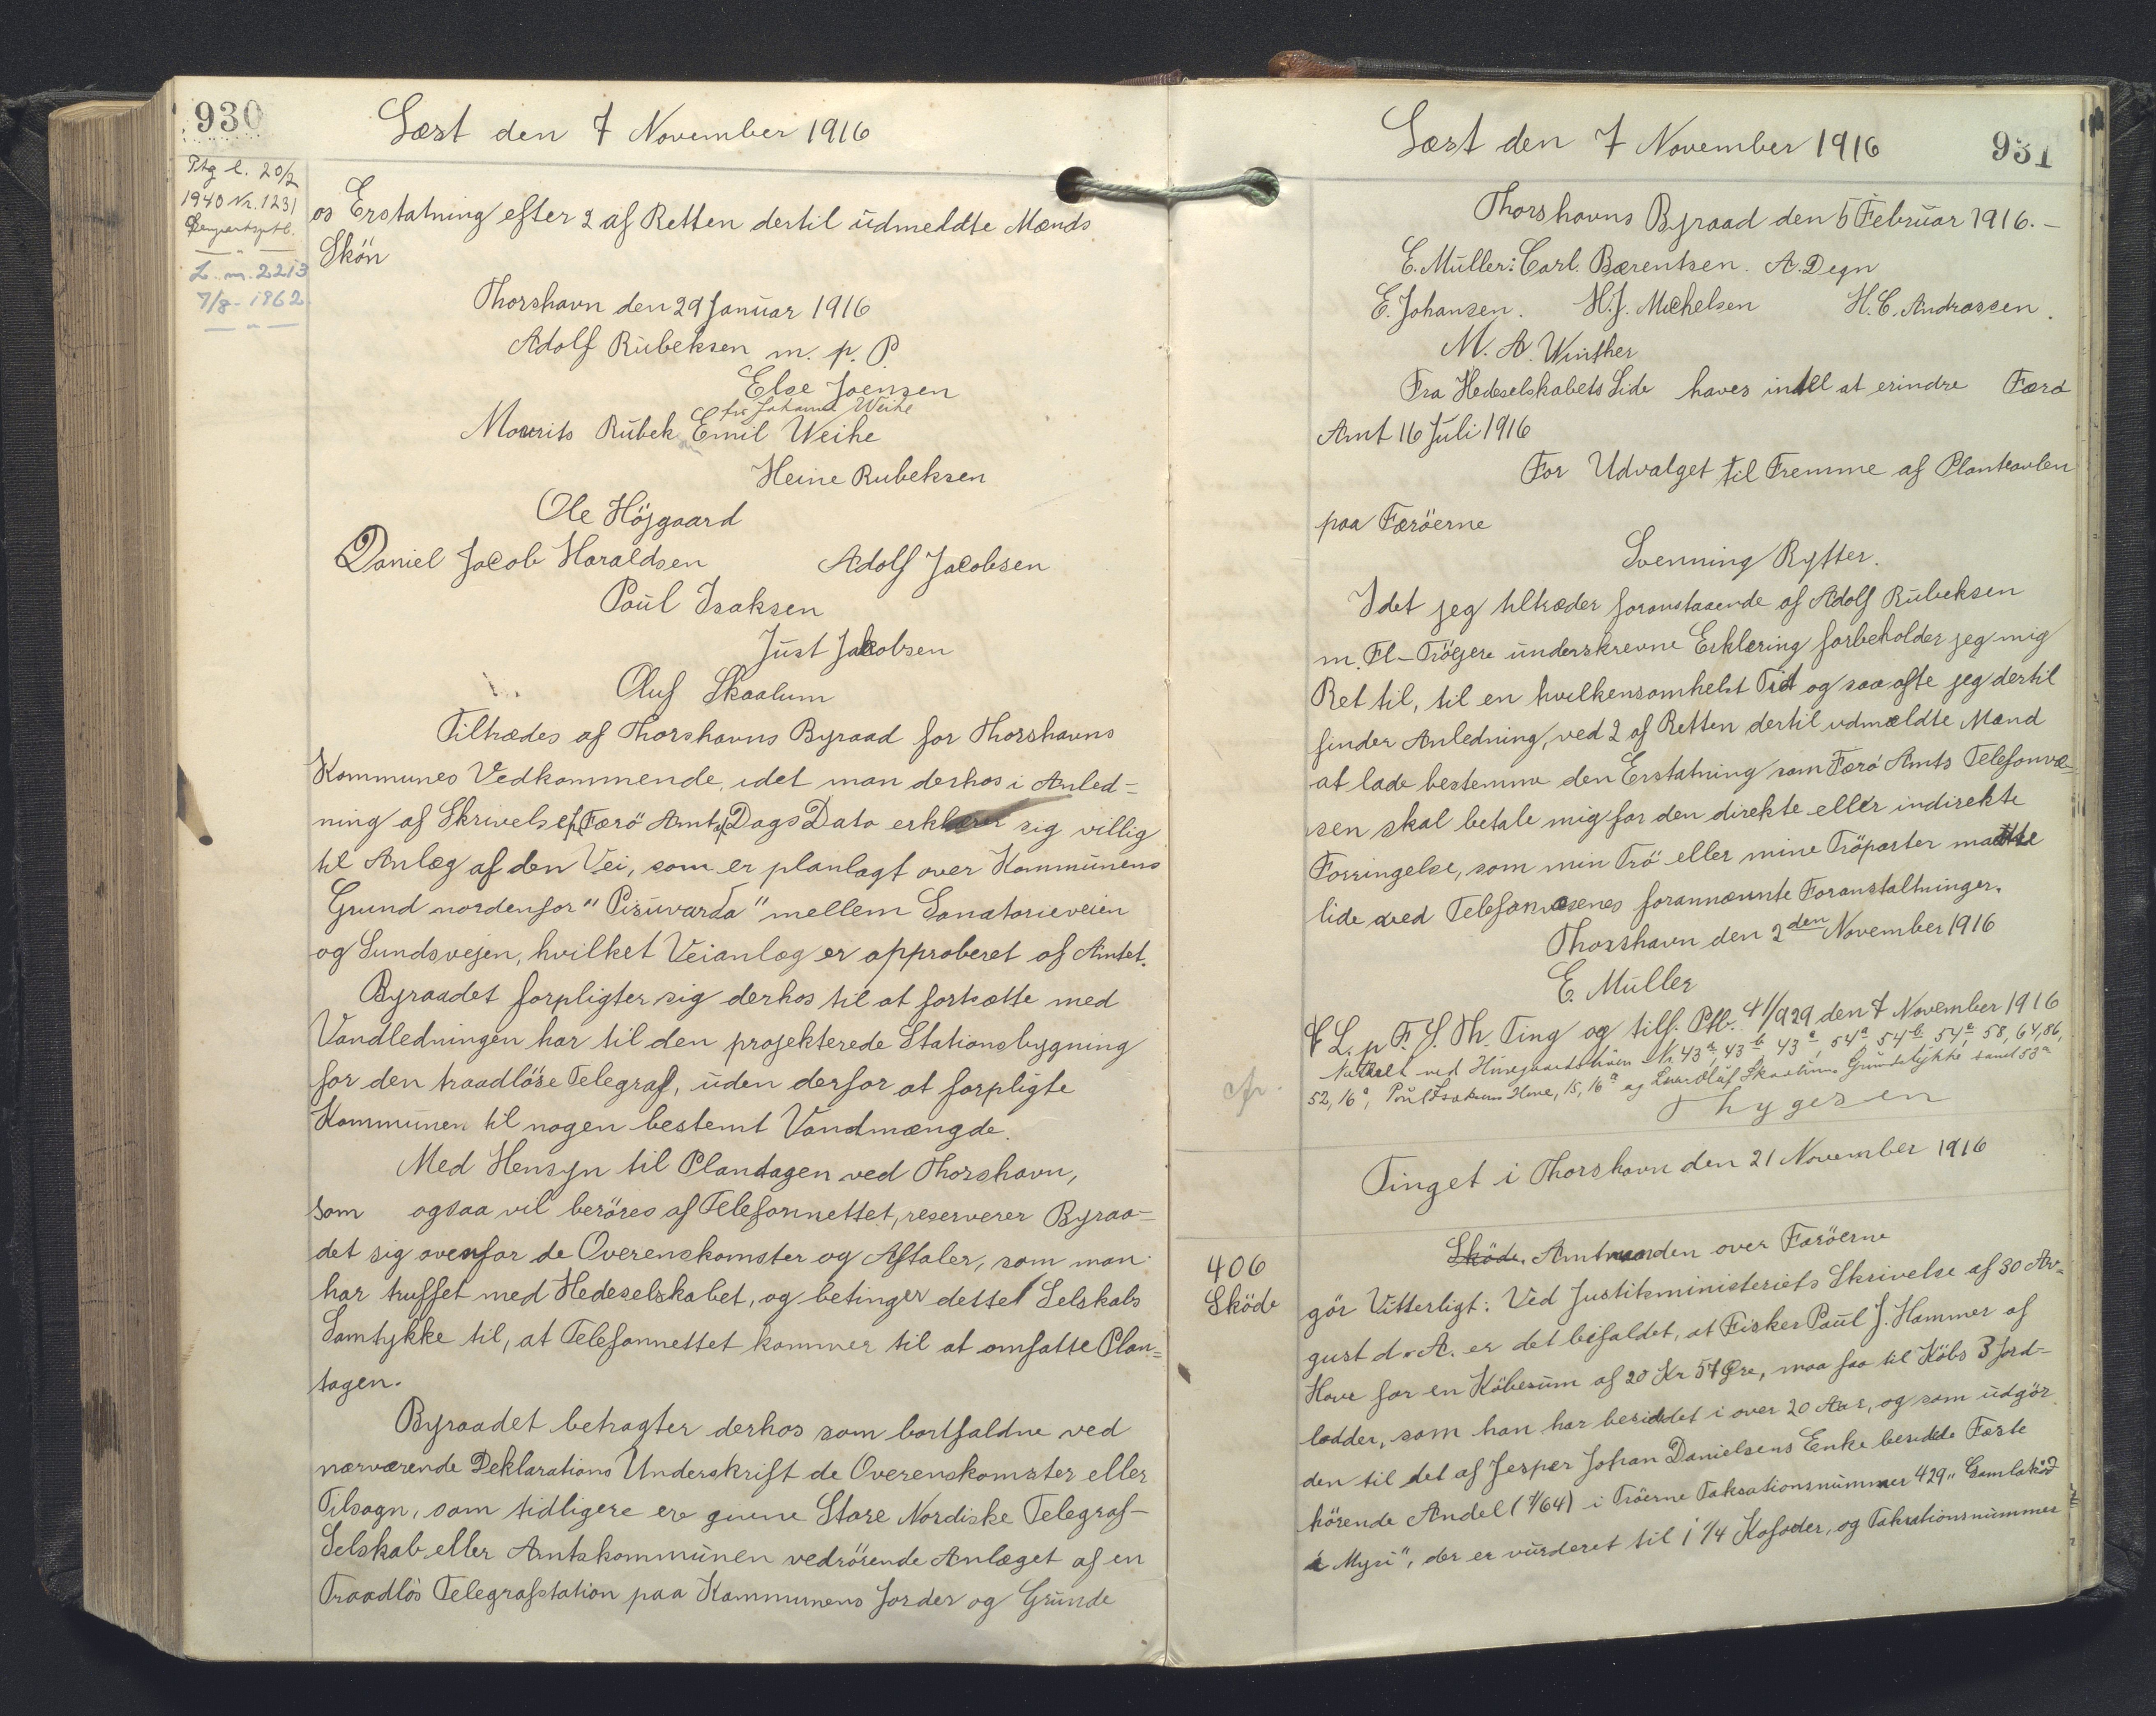 930
Læst den 7 November 1916
Ptg l. 20/2
1940 Nr. 1231
L. nr. 2213
7/8-1862
os Erstatning efter 2 af Retten dertil udmeldte Mænds
Skön
Thorshavn den 29 Januar 1916
Adolf Rubeksen m. p. P.
Else Joensen
for Johanna Weihe
Mourits Rubek Emil Weihe
Heine Rubeksen
Ole Höjgaard
Daniel Jacob Haraldsen Adolf Jacobsen
Poul Isaksen
Just Jacobsen
Oluf Skaalum
Tiltrædes af Thorshavns Byraad for Thorshavns
Kommunes Vedkommende, idet man derhos i Anled=
ning af Skrivelse f. Færö Amt af Dags Dato erklærer sig villig
til Anlæg af den Vei, som er planlagt over Kommunens
Grund nordenfor "Pisuvarda" mellem Sanatorieveien
og Sundsvejen, hvilket Veianlæg er approberet af Amtet.
Byraadet forpligter sig derhos til at fortsætte med
Vandledningen har til den projekterede Stationsbygning
for den traadlöse Telegraf, uden derfor at forpligte
Kommunen til nogen bestemt Vandmængde.
Med Hensyn til Plantagen ved Thorshavn,
som ogsaa vil beröres af Telefonnettet, reserverer Byraa=
det sig ovenfor de Overenskomster og Aftaler, som man
har truffet med Hedeselskabet, og betinger dette Selskabs
Samtykke til, at Telefonnettet kommer til at omfatte Plan=
tagen.
Byraadet betragter derhos som bortfaldne ved
nærværende Deklarations Underskrift de Overenskomster eller
Tilsagn, som tidligere ere givne Store Nordiske Telegraf-
Selskab eller Amtskommunen vedrörende Anlæget af en
Traadlös Telegrafstation paa Kommunens Jorder og Grunde
Læst den 7 November 1916
931
Thorshavns Byraad den 5 Februar 1916.-
E. Müller: Carl. Bærentsen. A. Degn
E. Johansen. H. J. Michelsen H. C. Andrassen.
M. A. Winther
Fra Hedeselskabets Side haves intet at erindre Færö
Amt 16 Juli 1916
For Udvalget til Fremme af Planteavlen
paa Færöerne
Svenning Rytter.
Idet jeg tiltræder foranstaaende af Adolf Rubeksen
m. Fl-Tröejere underskrevne Erklæring forbeholder jeg mig
Ret til, til en hvilkensomhelst Tid og saa ofte jeg dertil
finder Anledning, ved 2 af Retten dertil udmældte Mænd
at lade bestemme den Erstatning som Færö Amts Telefonvæ=
sen skal betale mig for den direkte eller indirekte
Forringelse, som min Trö eller mine Tröparter maatte
lide ved Telefonvæsenes forannævnte Foranstaltninger.
Thorshavn den 2den November 1916
E. Müller
L. p. F. S. Th. Ting og tilf. Ptb. 41/929 den 7 November 1916
Noteret ved Husegaardstrøen Nr. 43a, 43b 43c, 54a 54b 54c, 58, 64, 86,
52, 16a, Poul Isaksens Have, 15, 16a og Oluf Skaalums Grundstykke samt 53a
cfr.
Thygesen
Tinget i Thorshavn den 21 November 1916
406
Sköde
Sköde. Amtmanden over Færöerne
gör Vitterligt: Ved Justitsministeriets Skrivelse af 30 Av=
gust d. A. er det bifaldet, at Fisker Paul J. Hammer af
Hove for en Köbesum af 20 Kr 54 Øre, maa faa til Köbs 3 Jord-
lodder, som han har besiddet i over 20 Aar, og som udgör
den til det af Jesper Johan Danielsens Enke besidde Fæste
hörende Andel (1/64) i Tröerne Taksationsnummer 429 "Gamlatröd
à Myri", der er vurderet til 1 1/4 Kofoder, og Taksationsnummer